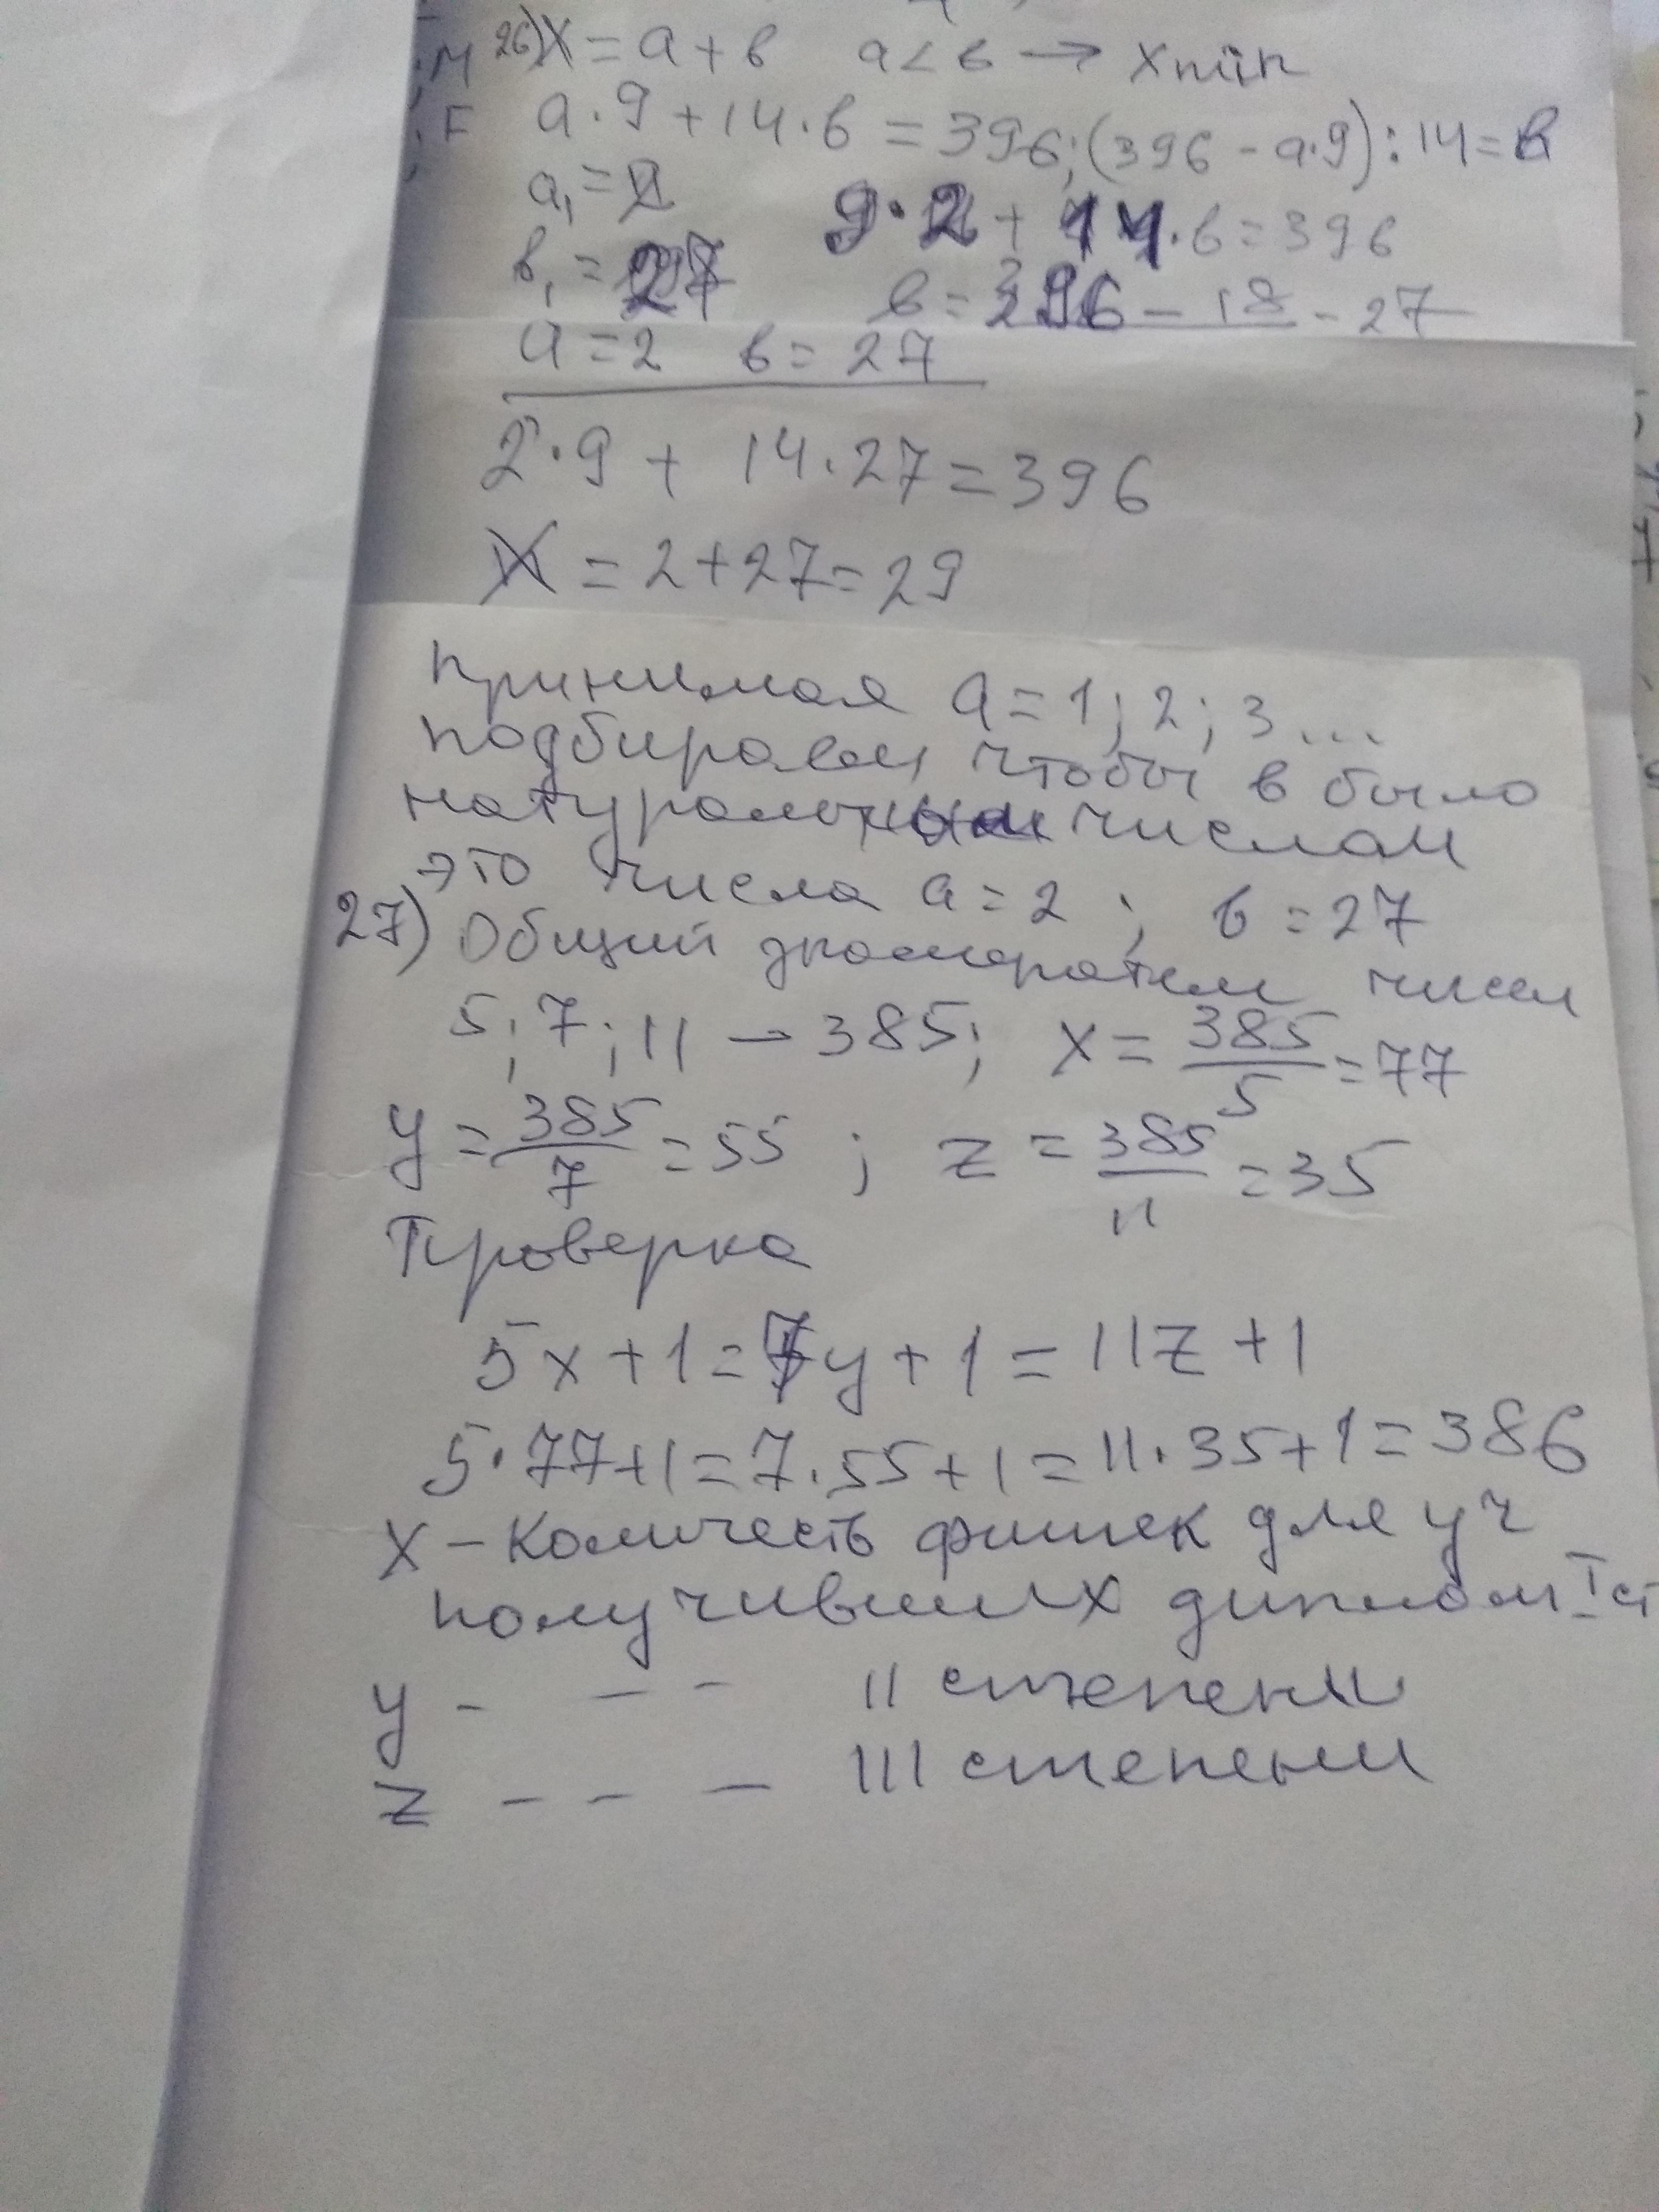 26) X = a + b a < b → X min
M
a · 9 + 14 · b = 396; (396 - a·9) : 14 = b
F
a₁ = 2
9 · 2 + 14 · b = 396
b₁ = 27
b = 396 - 18 - 27
a = 2 b = 27
2 · 9 + 14 · 27 = 396
X = 2 + 27 = 29
Принимая a = 1; 2; 3 ...
подбираем, чтобы b было
натуральным числом
это числа a = 2 ; b = 27
27) Общий знаменатель чисел
5; 7; 11 – 385; x = 385/5 = 77
y = 385/7 = 55 ; z = 385/11 = 35
Проверка
5x + 1 = 7y + 1 = 11z + 1
5·77+1 = 7·55+1 = 11·35+1 = 386
X – количесть фишек для уч
получивших диплом I ст
y - – – II степени
z – – – III степени